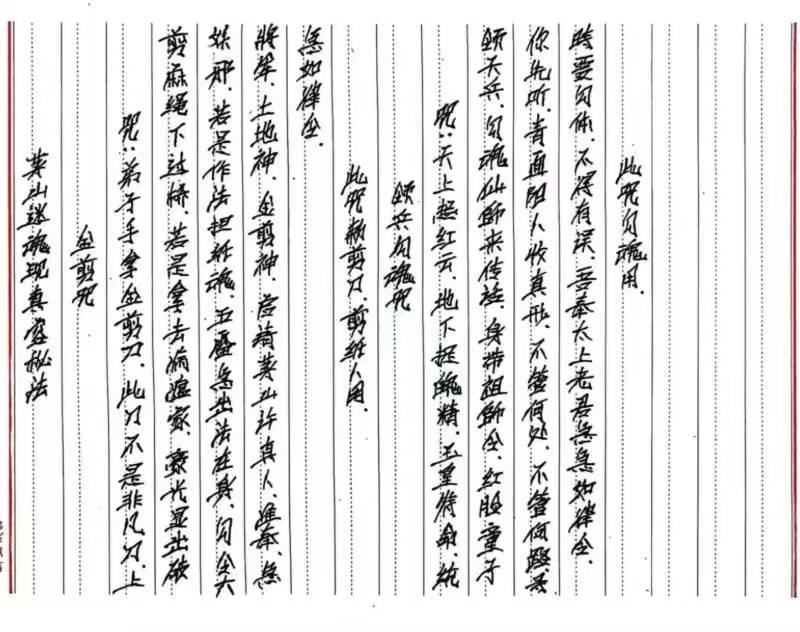 茅山迷魂现真容秘法
金剪咒
咒:弟子手拿金剪刀、此刀不是非凡刀、上
剪麻绳下过桥、若是拿去病瘟家、豪光显出破
妖邪、若是作法担纸魂、五雷急出法在身、勾令大
將军、土地神、金剪神、启请茅山许真人、准奉、急
急如律令.
此咒敕剪刀、剪纸人用.
领兵勾魂咒
咒:天上起红云、地下捉魂精、玉皇符命、统
领天兵、勾魂仙師来传话、身带祖師令、红脸童子
你先听、青面阴人收真形、不管何处、不管何
時要勾体、不得有误、吾奉太上老君急急如律令.
此咒勾魂用.